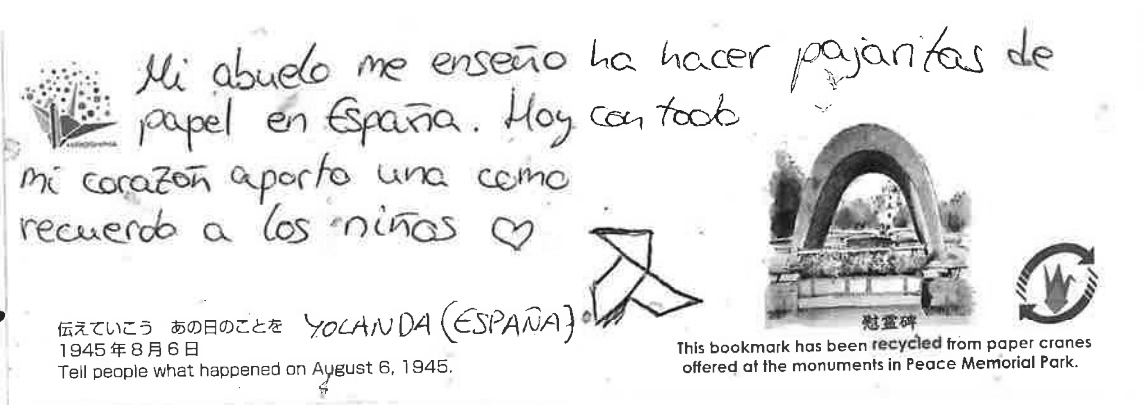 Mi abuelo me enseño ha hacer pajaritas de
papel en España. Hoy con todo
mi corazón aporto una como
recuerdo a los niñas ♡
伝えていこう あの日のことを YOLANDA (ESPAÑA)
1945年8月6日
Tell people what happened on August 6, 1945.
慰霊碑
This bookmark has been recycled from paper cranes
offered at the monuments in Peace Memorial Park.